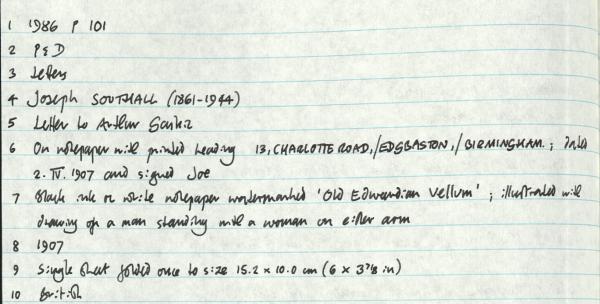 1 1986 P 101
2 P & D
3 Letters
4 Joseph SOUTHALL (1861-1944)
5 Letter to Arthur Gaskin
6 On notepaper with printed heading 13, CHARLOTTE ROAD,/EDGBASTON,/BIRMINGHAM. ; dated
2. IV. 1907 and signed Joe
7 Black ink on white notepaper watermarked 'Old Edwardian Vellum' ; illustrated with
drawing of a man standing with a woman on either arm
8 1907
9 Single sheet folded once to size 15.2 x 10.0 cm (6 x 3 7/8 in)
10 British